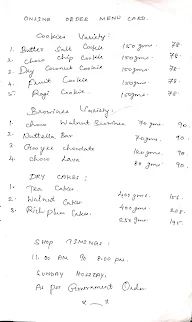 ONLINE ORDER MENU CARD.
Cookies Variety:
1. Butter Salt Cookie 150 gms. 75.
2. Choco chip Cookie 150 gms. 75.
3. Dry Coconut Cookie 150 gms. 75.
4. Fruit Cookie 150 gms. 75.
5. Ragi Cookie 150 gms. 75.
Brownies Variety:
1. Choco Walnut Brownies 70 gms. 90.
2. Nuttella Bar 70 gms. 90.
3. chocolate gms. 90.
4. Choco Lava 80 gms. 90.
DRY CAKES:
1. Tea Cakes 400 gms.
2. Walnut Cakes 400 gms.
3. Rich plum Cakes. 250 gms
SHOP TIMINGS:
11.00 AM To 8:00 pm.
SUNDAY HOLIDAY.
As per Government Order